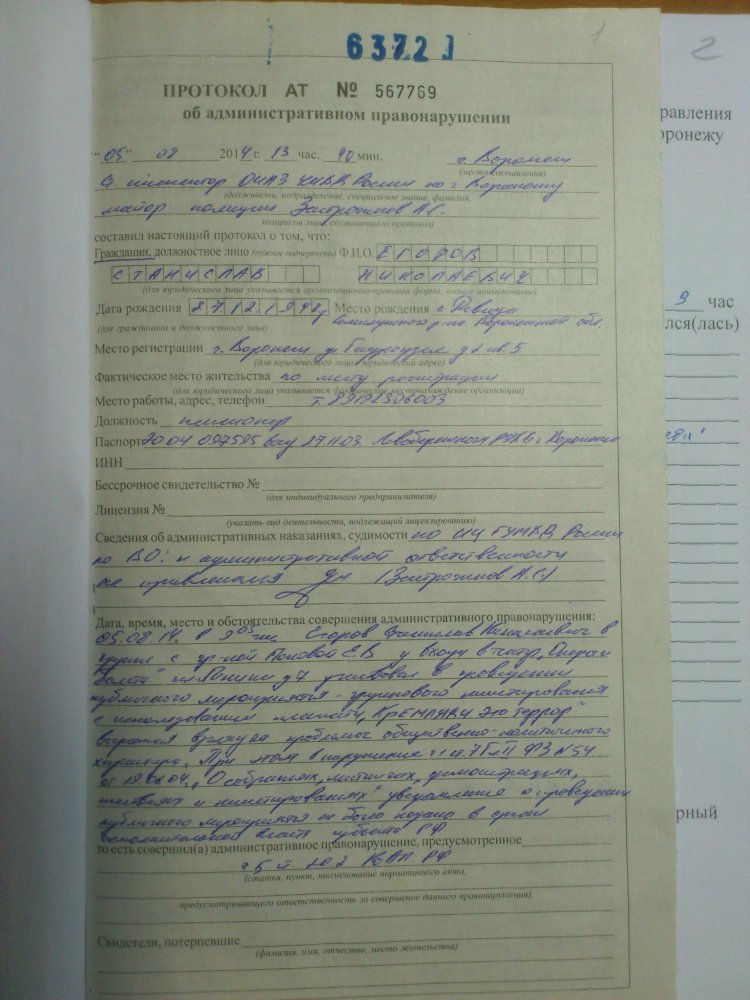 63721
1
2
ПРОТОКОЛ АТ № 567769
об административном правонарушении
"05" 08 2014 г. 13 час. 40 мин. г. Воронеж
(место составления)
Ст. инспектор ОИАЗ УМВД России по г. Воронежу
(должность, подразделение, специальное звание, фамилия,
майор полиции А.С.
инициалы лица составившего протокол)
составил настоящий протокол о том, что:
Гражданин, должностное лицо (нужное подчеркнуть) Ф.И.О. ЕГОРОВ
СТАНИСЛАВ НИКОЛАЕВИЧ
(для юридического лица указывается организационно-правовая форма, полное наименование)
Дата рождения 27121948 Место рождения с. Девица
(для гражданина и должностного лица) Семилукского р-на Воронежской обл.
Место регистрации г. Воронеж ул. д. 2 кв. 5
(для юридического лица юридический адрес)
Фактическое место жительства по месту регистрации
(для юридического лица указывается фактическое местонахождение организации)
Место работы, адрес, телефон т. 89192506003
Должность пенсионер
Паспорт 2004 097595 выд 27.11.03. Левобережным РУВД г. Воронежа
ИНН
Бессрочное свидетельство №
(для индивидуального предпринимателя)
Лицензия №
(указать вид деятельности, подлежащий лицензированию)
Сведения об административных наказаниях, судимости по ИЦ ГУМВД России
по ВО: к административной ответственности
не привлекался А.С.)
Дата, время, место и обстоятельства совершения административного правонарушения:
05.08.14. в 9 Егоров Станислав Николаевич в
группе с гр-ной Поповой Е.В. у входа в театр "Оперы и
балета" пл. Ленина д 7 участвовал в проведении
публичного мероприятия - группового пикетирования
с использованием плаката "КРЕМЛЯДИ это террор"
выражая взгляд на проблемы общественно-политического
характера. При этом в нарушение ч 1 ст. 7 ФЗ N 54
от 19.06.04. "О собраниях, митингах, демонстрациях,
шествиях и пикетированиях" уведомление о проведении
публичного мероприятия не было подано в орган
исполнительной власти субъекта РФ
то есть совершил(а) административное правонарушение, предусмотренное
ч 5 ст 20.2 КоАП РФ
(статья, пункт, наименование нормативного акта,
предусматривающего ответственность за совершение данного правонарушения)
Свидетели, потерпевшие
(фамилия, имя, отчество, место жительства)
равления
оронежу
9 час
лся(лась)
рный